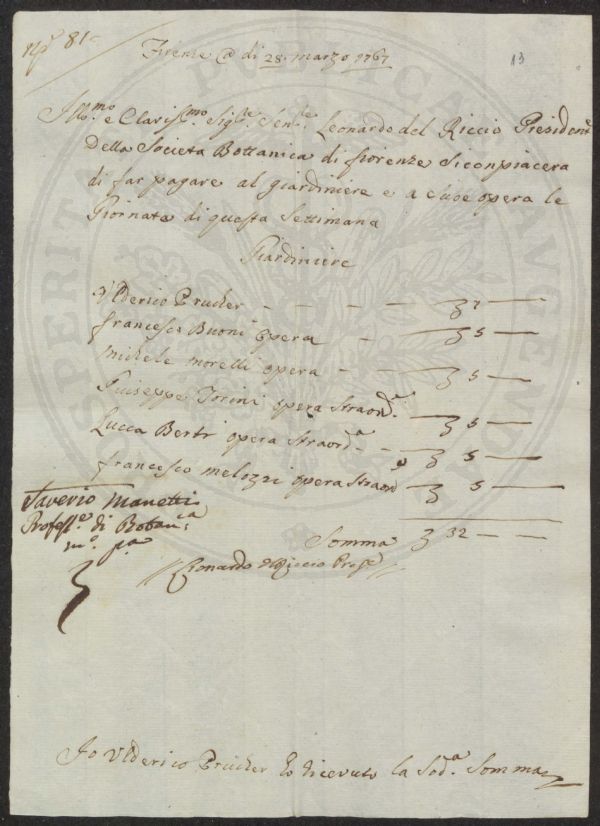 Nº 81
13
Firenze @ di 28 marzo 1767
Illmo. e Clarissmo. Sigre. Sente. Leonardo del Riccio Presidente
Della Societa Bottanica di fiorenze Si conpiacera
di far pagare al giardiniere e a Sue opera le
Giornate di questa Settimana
Giardiniere
Ulderico Prucker — — — — 7 —
francesco Buoni opera — 5 —
Michele morelli opera — — 5 —
Giuseppe Torini opera Straord.a 5 —
Lucca Berti opera Straord.a — 5 —
francesco melozzi opera Straord 5 —
Saverio Manetti
Profess.e di Botan.ca
m.o p.a
Somma 32 — —
Leonardo del Riccio Presᵉ
Io Ulderico Prucker ho ricevuto la Sod.a Somma
PUBLICAE
AUGENDAE
PROSPERITATI